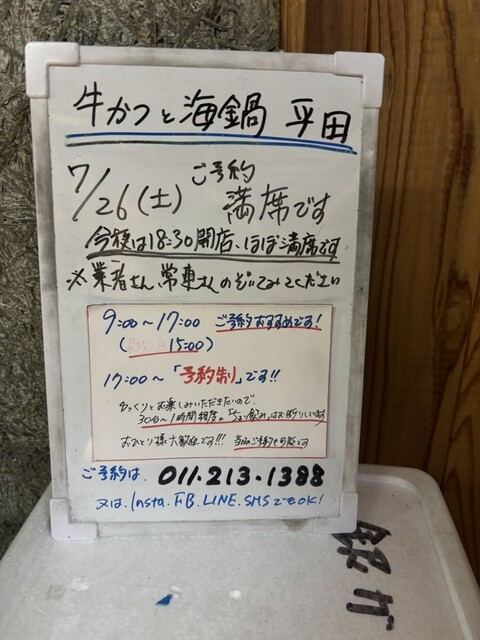 牛かつと海鍋 平田
7/26(土) ご予約 満席です
今夜は18:30開店、ほぼ満席です
※業者さん、常連さんのぞいてみてください
9:00～17:00 ご予約おすすめです!
( 15:00)
17:00～「予約制」です!!
ゆっくりとお楽しみいただきたいので、
30分～1時間程度の「ちょい飲み」はお断りしています
おひとり様大歓迎です!!! 当日ご予約も可能です
ご予約は 011.213.1388
又は、Insta.FB.LINE.SMSでもOK!
銀ガ